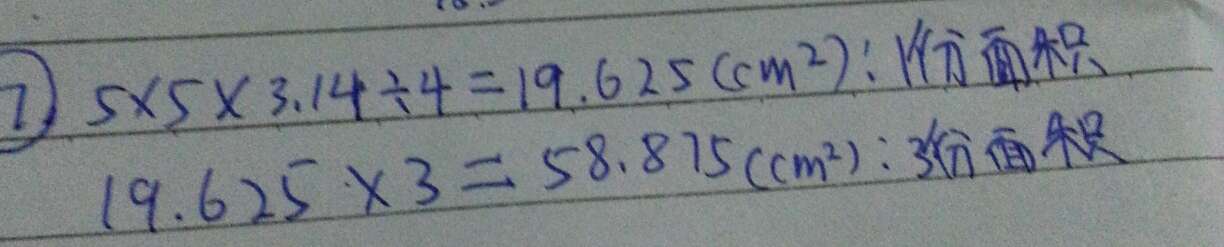 ⑦ 5×5×3.14÷4=19.625(cm²):1份面积
19.625×3=58.875(cm²):3份面积